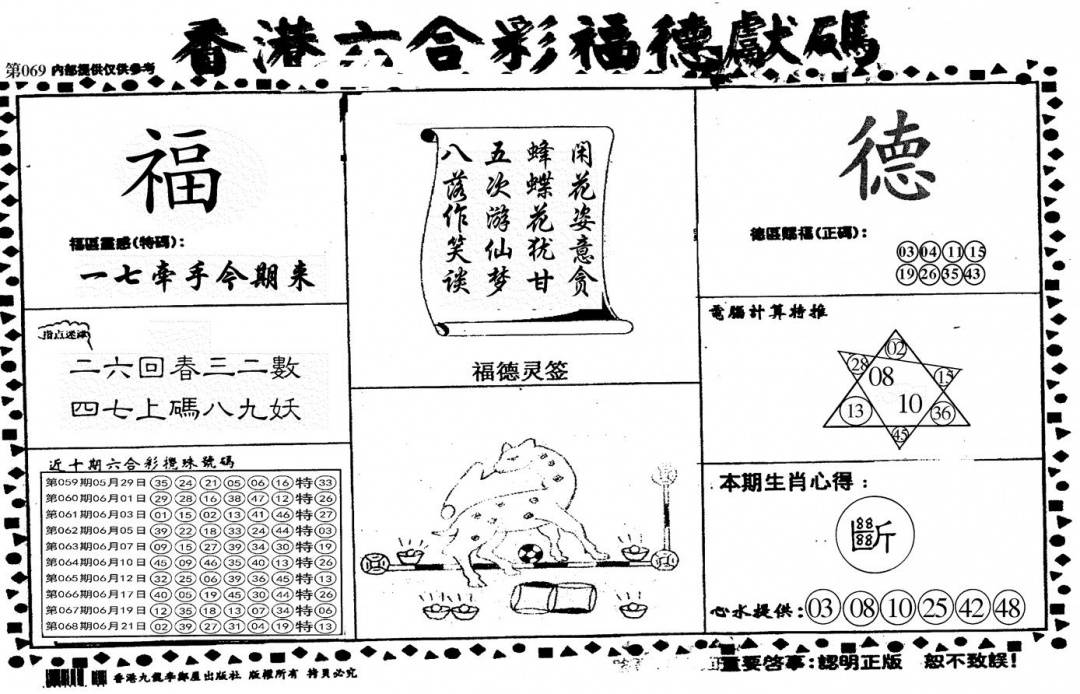 香港六合彩福德獻碼
第069 内部提供仅供参考
福
福區靈感(特碼):
一七牽手今期来
指点迷津
二六回春三二數
四七上碼八九妖
近十期六合彩攪珠號碼
第059期05月29日 35 24 21 05 06 16 特 33
第060期06月01日 29 28 16 38 47 12 特 26
第061期06月03日 01 15 02 13 41 46 特 27
第062期06月05日 39 22 18 33 24 44 特 03
第063期06月07日 09 15 27 39 34 30 特 19
第064期06月10日 45 09 46 35 40 13 特 26
第065期06月12日 32 25 06 39 36 45 特 13
第066期06月17日 40 05 19 45 30 44 特 26
第067期06月19日 12 35 18 13 07 34 特 06
第068期06月21日 02 39 27 31 04 19 特 13
闲花姿意贪
蜂蝶花犹甘
五次游仙梦
八落作笑谈
福德灵签
德
德區賜福(正碼):
03 04 11 15
19 26 35 43
電腦計算特推
02
28 08 15
13 10 36
45
本期生肖心得:
斷
心水提供:03 08 10 25 42 48
香港九龍李鄭屋出版社 版權所有 拷貝必究
重要啓事:認明正版 恕不致誤!